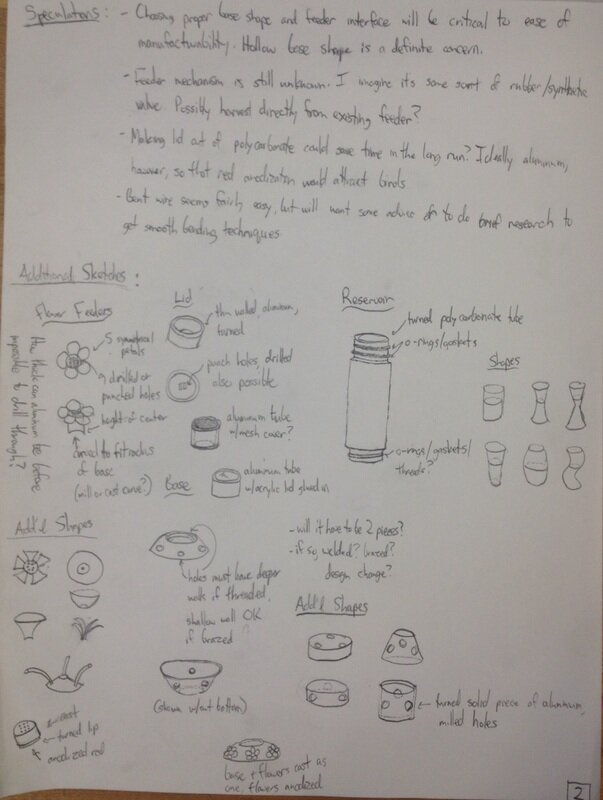 Speculations: - Choosing proper base shape and feeder interface will be critical to ease of
manufacturability. Hollow base shape is a definite concern.
- Feeder mechanism is still unknown. I imagine it's some sort of rubber/synthetic
valve. Possibly harvest directly from existing feeder?
- Making lid out of polycarbonate could save time in the long run? Ideally aluminum,
however, so that red anodization would attract birds
- Bent wire seems fairly easy, but will want some advice or to do brief research to
get smooth bending techniques
Additional Sketches:
Flower Feeders
How thick can aluminum be before
impossible to drill through?
5 symmetrical
petals
drilled or
punched holes
height of center
curved to fit radius
of base
(mill or cast curve?)
Lid
thin walled, aluminum,
turned
punch holes, drilled
also possible
aluminum tube
w/mesh cover?
aluminum tube
w/acrylic lid glued in
Reservoir
turned polycarbonate tube
o-rings/gaskets
o-rings/gaskets/
threads?
Shapes
Base
holes must have deeper
walls if threaded,
shallow wall OK
if brazed
(shown w/out bottom)
base + flowers cast as
one, flowers anodized
- will it have to be 2 pieces?
- if so, welded? brazed?
design change?
Add'l Shapes
turned solid piece of aluminum,
milled holes
Add'l Shapes
cast
turned lip
anodized red
2